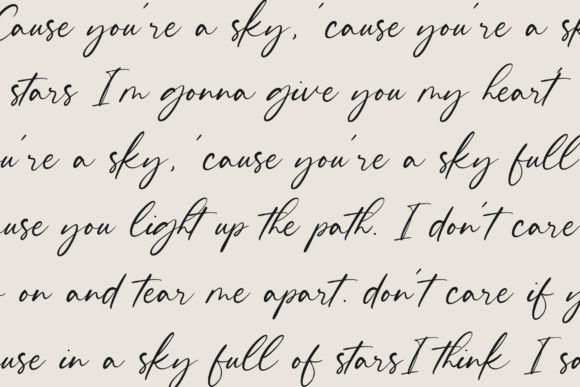 Cause you're a sky, 'cause you're a sk
stars I'm gonna give you my heart
u're a sky, 'cause you're a sky full
ause you light up the path. I don't care
on and tear me apart. don't care if y
use in a sky full of stars I think I sa